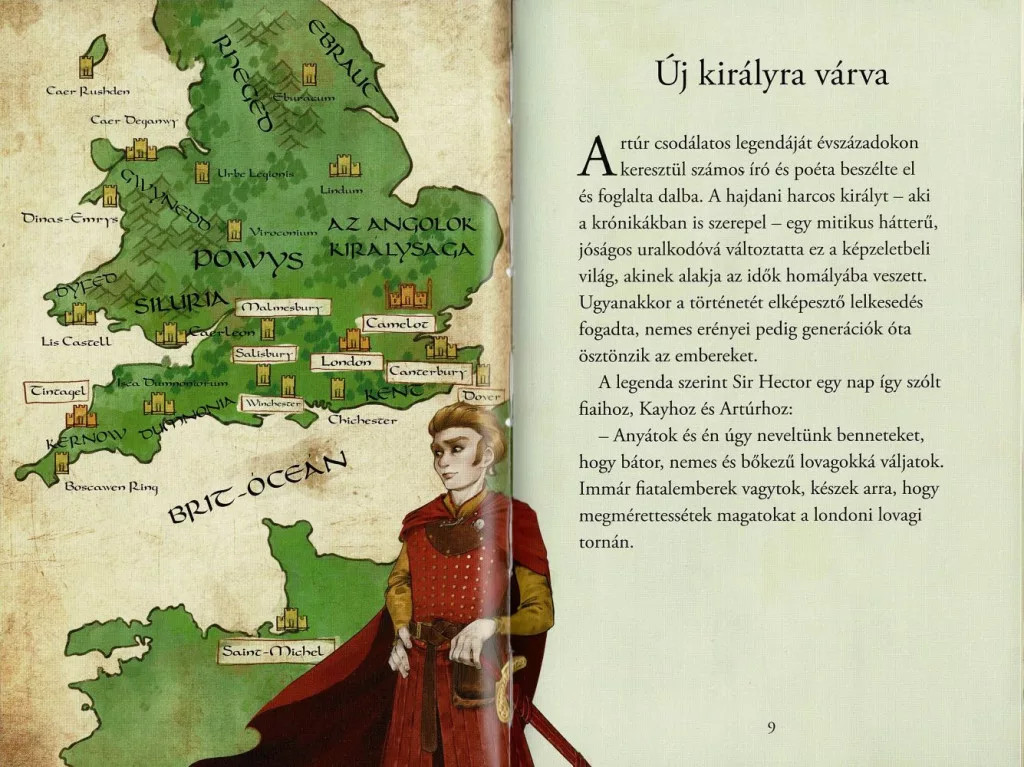 EBRAUC
RHEGED
Eburacum
Caer Rushden
Caer Deganwy
Urbe Legionis
Lindum
GWYNEDD
Dinas-Emrys
Viroconium
AZ ANGOLOK
KIRÁLYSÁGA
POWYS
DYFED
SILURIA
Malmesbury
Camelot
Lis Castell
Caerleon
Salisbury
London
Canterbury
Tintagel
Isca Dumnoniorum
Winchester
KENT
Dover
DUMNONIA
Chichester
KERNOW
Boscawen Ring
BRIT-ÓCEÁN
Saint-Michel
Új királyra várva
Artúr csodálatos legendáját évszázadokon
keresztül számos író és poéta beszélte el
és foglalta dalba. A hajdani harcos királyt – aki
a krónikákban is szerepel – egy mitikus hátterű,
jóságos uralkodóvá változtatta ez a képzeletbeli
világ, akinek alakja az idők homályába veszett.
Ugyanakkor a történetét elképesztő lelkesedés
fogadta, nemes erényei pedig generációk óta
ösztönzik az embereket.
A legenda szerint Sir Hector egy nap így szólt
fiaihoz, Kayhoz és Artúrhoz:
– Anyátok és én úgy neveltünk benneteket,
hogy bátor, nemes és bőkezű lovagokká váljatok.
Immár fiatalemberek vagytok, készek arra, hogy
megmérettessétek magatokat a londoni lovagi
tornán.
9